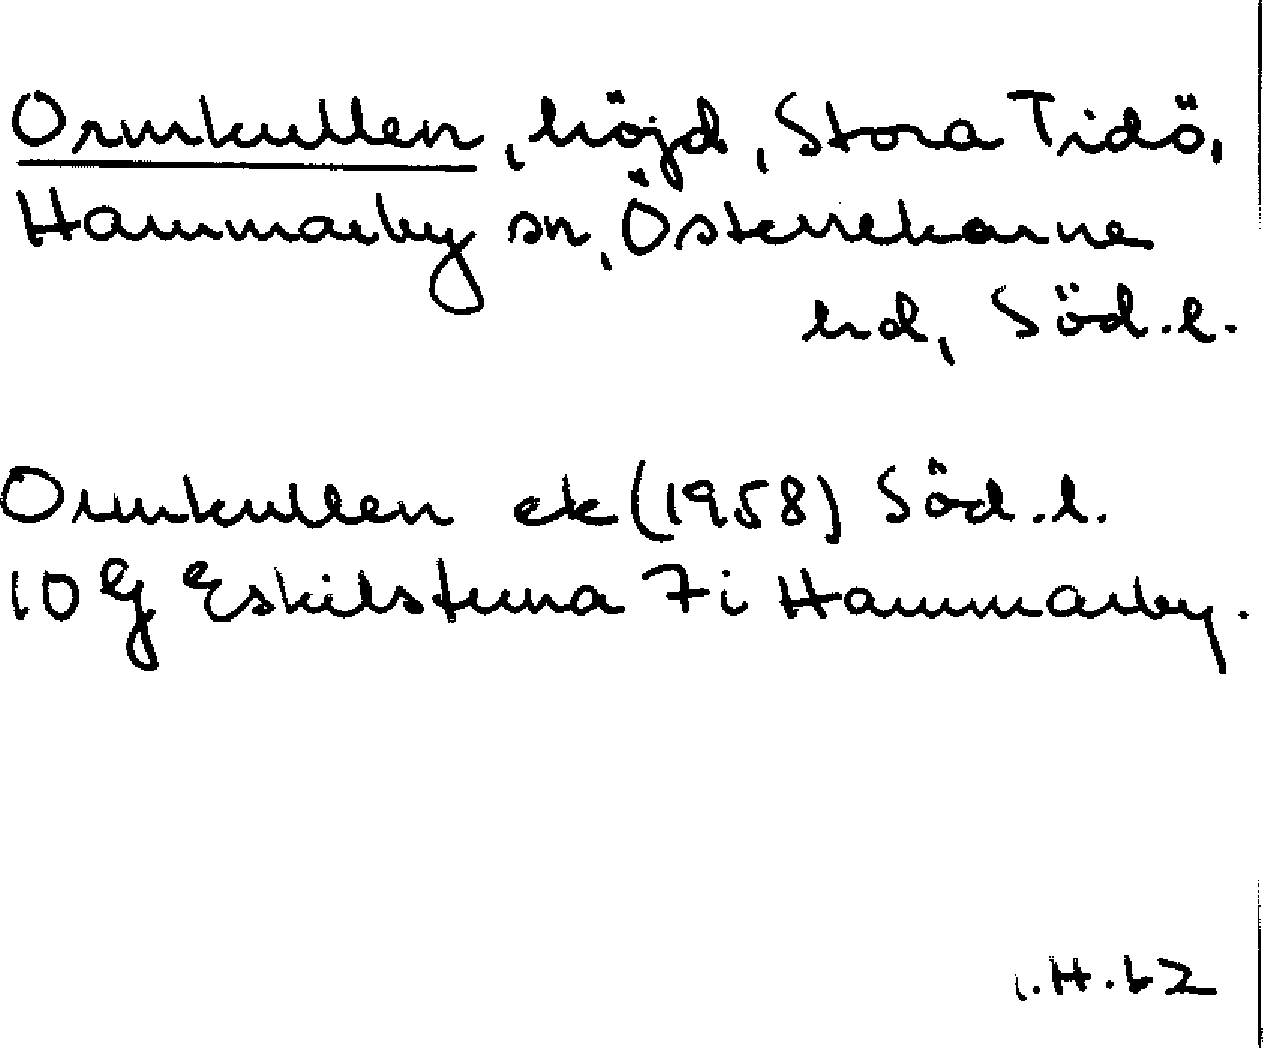 Ormkullen, höjd, Stora Tidö,
Hammarby sn, Österrekarne
hd, Söd.l.
Ormkullen ek (1958) Söd.l.
10 G Eskilstuna 7 i Hammarby.
I.H.62